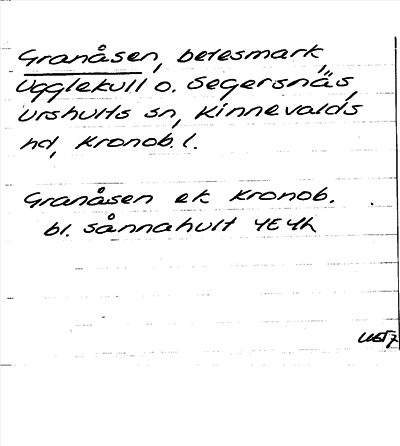 Granåsen, betesmark,
Ugglekull o. Segersnäs,
Urshults sn, Kinnevalds
hd, Kronob. l.
Granåsen ek Kronob.
bl. Sånnahult 4E4h